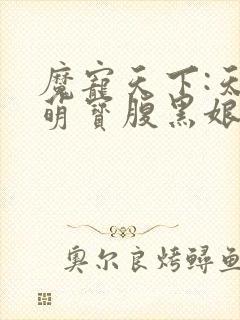 魔宠天下:天
萌宝腹黑娘
奥尔良烤鲟鱼